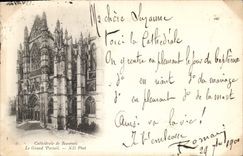 Ma chère Suzanne
Voici la Cathédrale
On y entre en pleurant le jour du baptême
en riant du mariage
en pleurant de la mort
Ainsi va la vie!
Je t'embrasse
Cathédrale de Beauvais
Le Grand Portail. — ND Phot